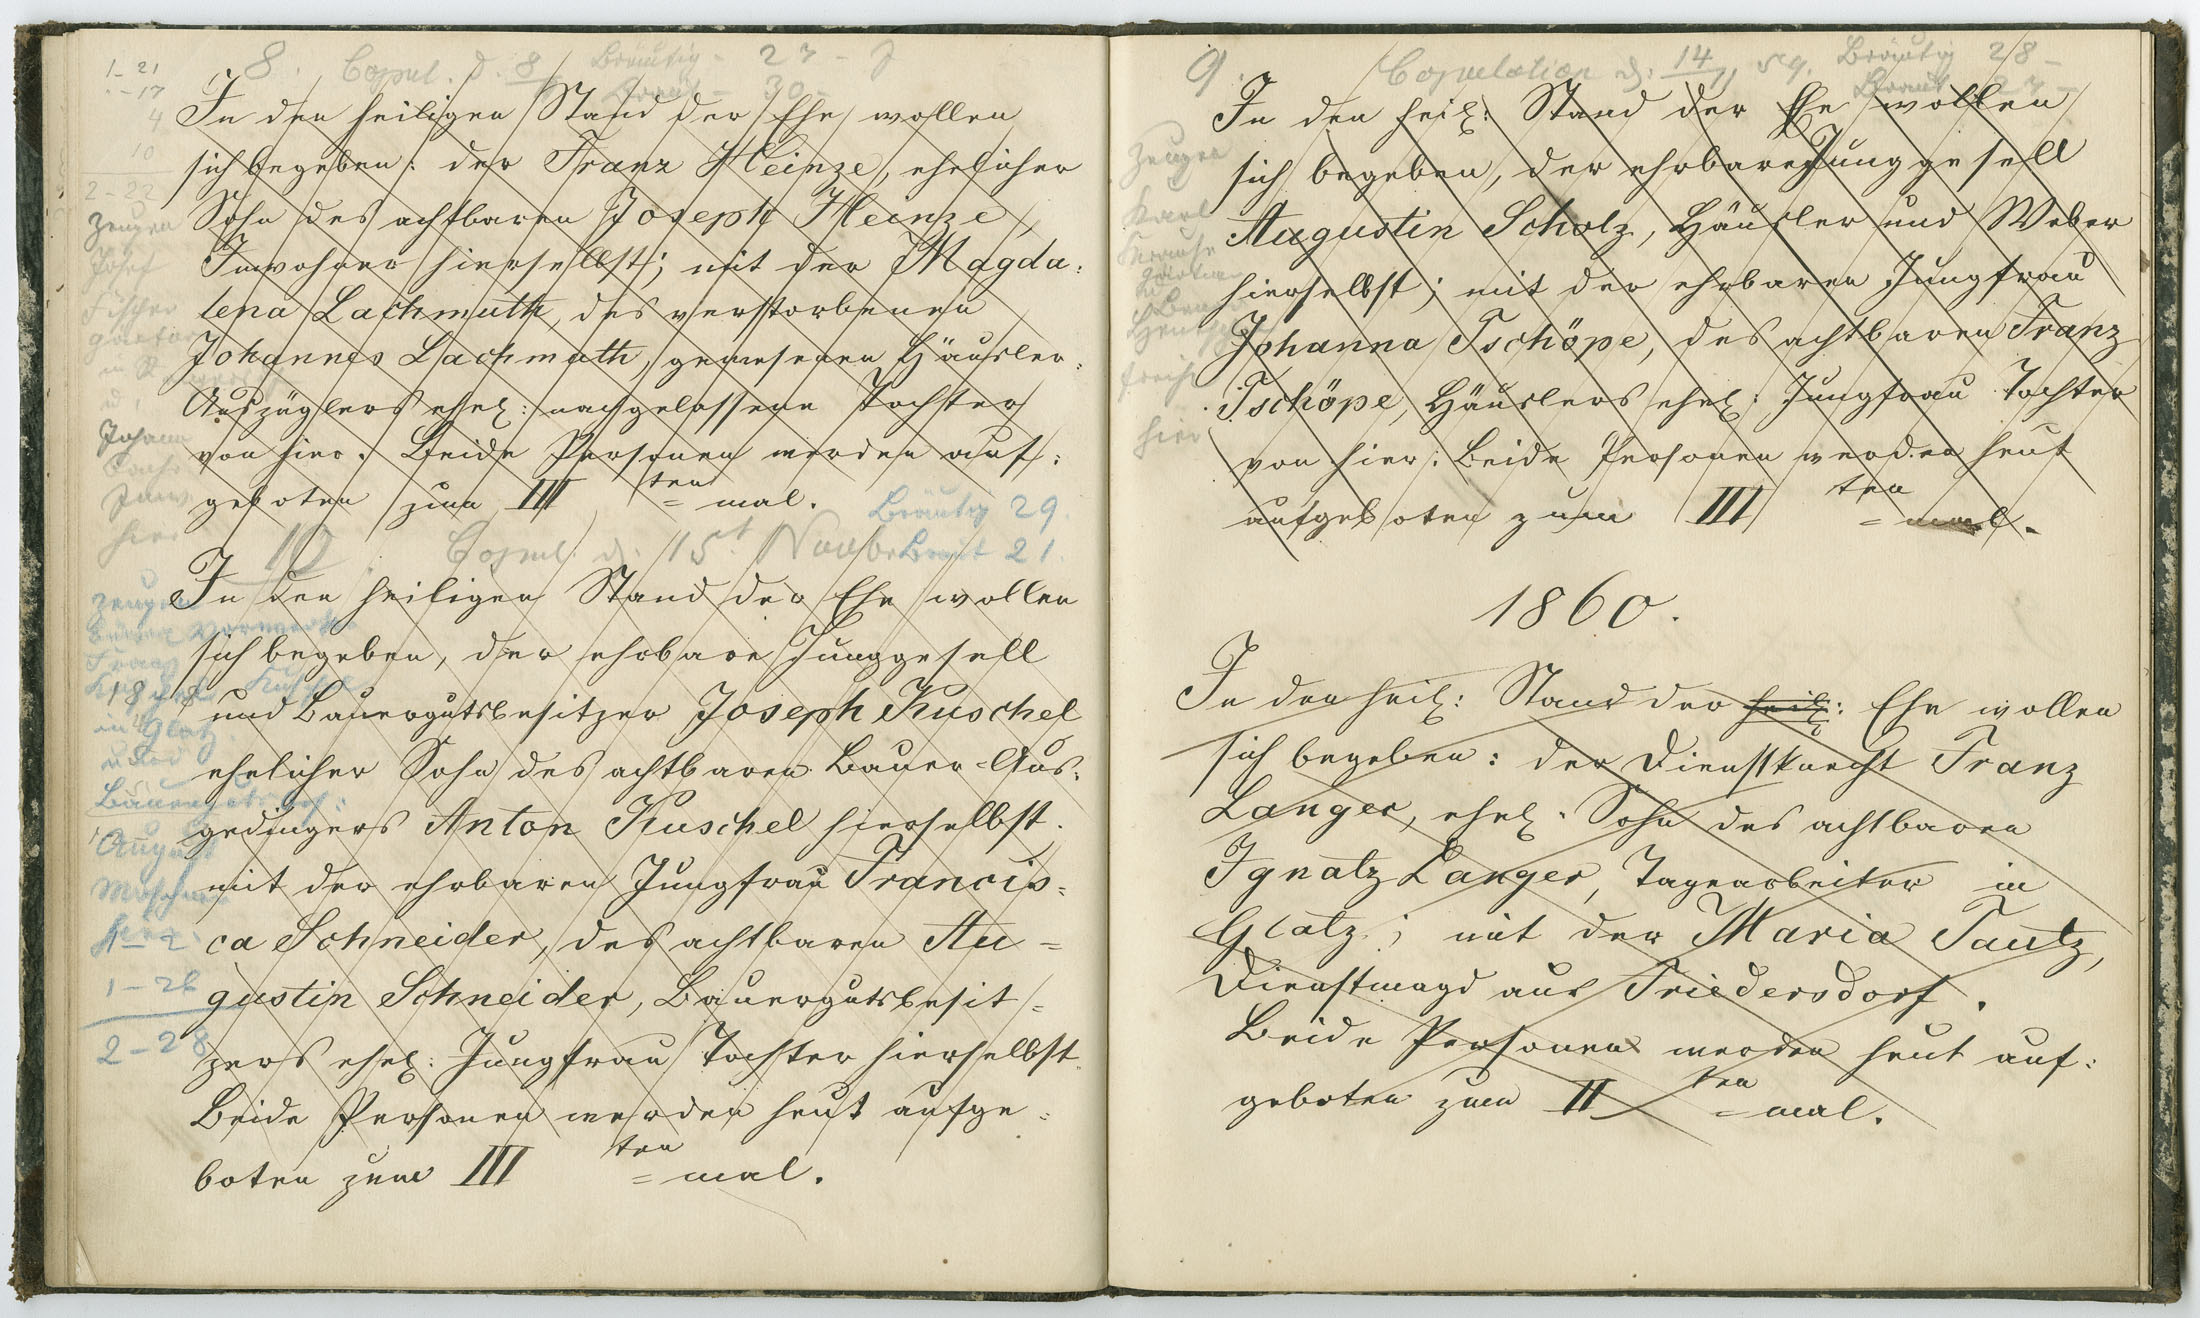 8. Copul. d. 8 Bräutig - 27 - J
Braut - 30 -
1 - 21
- 17
4
10
2 - 22
In den heiligen Stand der Ehe wollen
sich begeben: der Franz Heinze, ehelicher
Sohn des achtbaren Joseph Heinze,
Inwohner hierselbst; mit der Magda:
lena Lachmuth, des verstorbenen
Johannes Lachmuth, gewesenen Häusler-
Auszüglers ehel: nachgelassene Tochter
von hier. Beide Personen werden auf:
geboten zum III ten = mal.
Zeugen
Josef
Fischer
Johann
hier
10. Copul. d. 15t Novbr
Bräutig 29.
Braut 21.
In den heiligen Stand der Ehe wollen
sich begeben, der ehrbare Junggesell
und Bauergutsbesitzer Joseph Kuschel
ehelicher Sohn des achtbaren Bauer-Aus:
gedingers Anton Kuschel hierselbst.
mit der ehrbaren Jungfrau Francis=
ca Schneider, des achtbaren Au=
gustin Schneider, Bauergutsbesit=
zers ehel: Jungfrau Tochter hierselbst.
Beide Personen werden heut aufge=
boten zum III ten = mal.
Zeugen
Franz
Kuschel
in Glatz
und
August
hier.
1 - 2
1 - 26
2 - 28
9. Copulation d: 14/11 59. Bräutig 28 -
Braut 27 -
In den heil: Stand der Ehe wollen
sich begeben, der ehrbare Junggesell
Augustin Scholz, Häusler und Weber
hierselbst; mit der ehrbaren Jungfrau
Johanna Tschöpe, des achtbaren Franz
Tschöpe, Häuslers ehel: Jungfrau Tochter
von hier: Beide Personen werden heut
aufgeboten zum III ten = mal.
Zeugen
Karl
hier
1860.
In den heil: Stand der heil: Ehe wollen
sich begeben: der Dienstknecht Franz
Langer, ehel. Sohn des achtbaren
Ignatz Langer, Tagearbeiter in
Glatz; mit der Maria Tautz,
Dienstmagd aus Friedersdorf.
Beide Personen werden heut auf:
geboten zum II ten = mal.